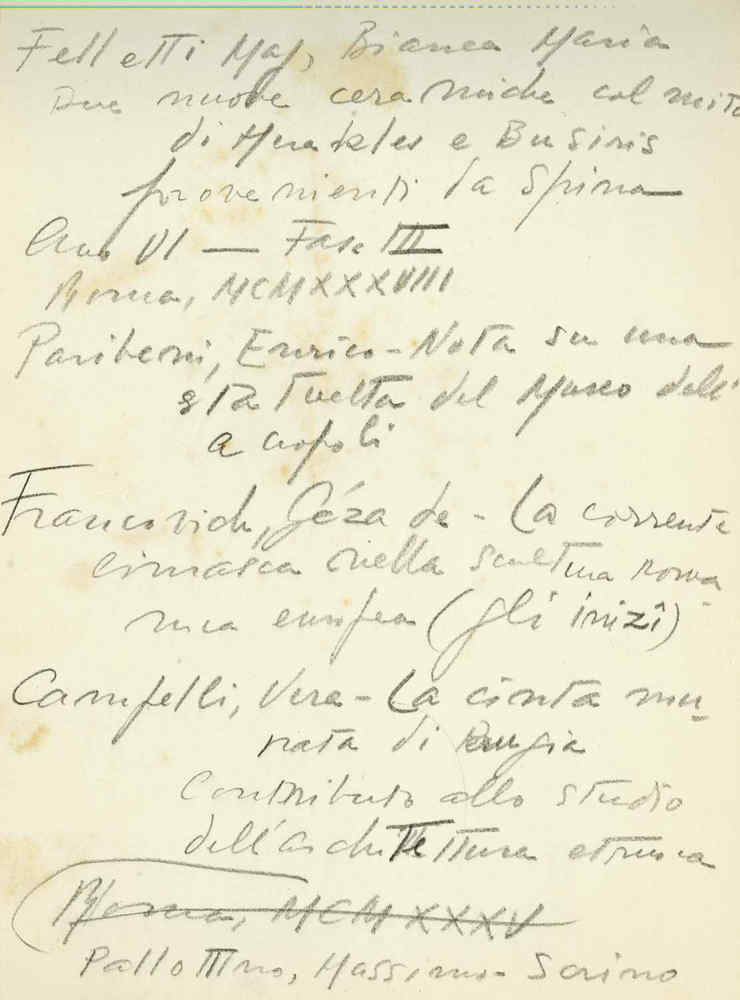 Felletti Maj, Bianca Maria
Due nuove ceramiche col mito
di Herakles e Busiris
provenienti da Spina
Anno VI — Fasc III
Roma, MCMXXXVIII
Paribeni, Enrico - Nota su una
statuetta del Museo dell'
acropoli
Francovich, Géza de - La corrente
comasca nella scultura roma
nica europea (gli inizî)
Campelli, Vera - La cinta mu-
rata di Perugia
Contributo allo studio
dell'architettura etrusca
Roma, MCMXXXV
Pallottino, Massimo - Scrino